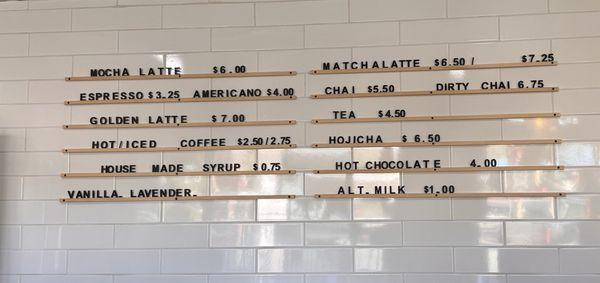 MOCHA LATTE $6.00
ESPRESSO $3.25 AMERICANO $4.00
GOLDEN LATTE $7.00
HOT/ICED COFFEE $2.50/2.75
HOUSE MADE SYRUP $0.75
VANILLA. LAVENDER.
MATCHA LATTE $6.50 / $7.25
CHAI $5.50 DIRTY CHAI 6.75
TEA $4.50
HOJICHA $6.50
HOT CHOCOLATE 4.00
ALT. MILK $1.00